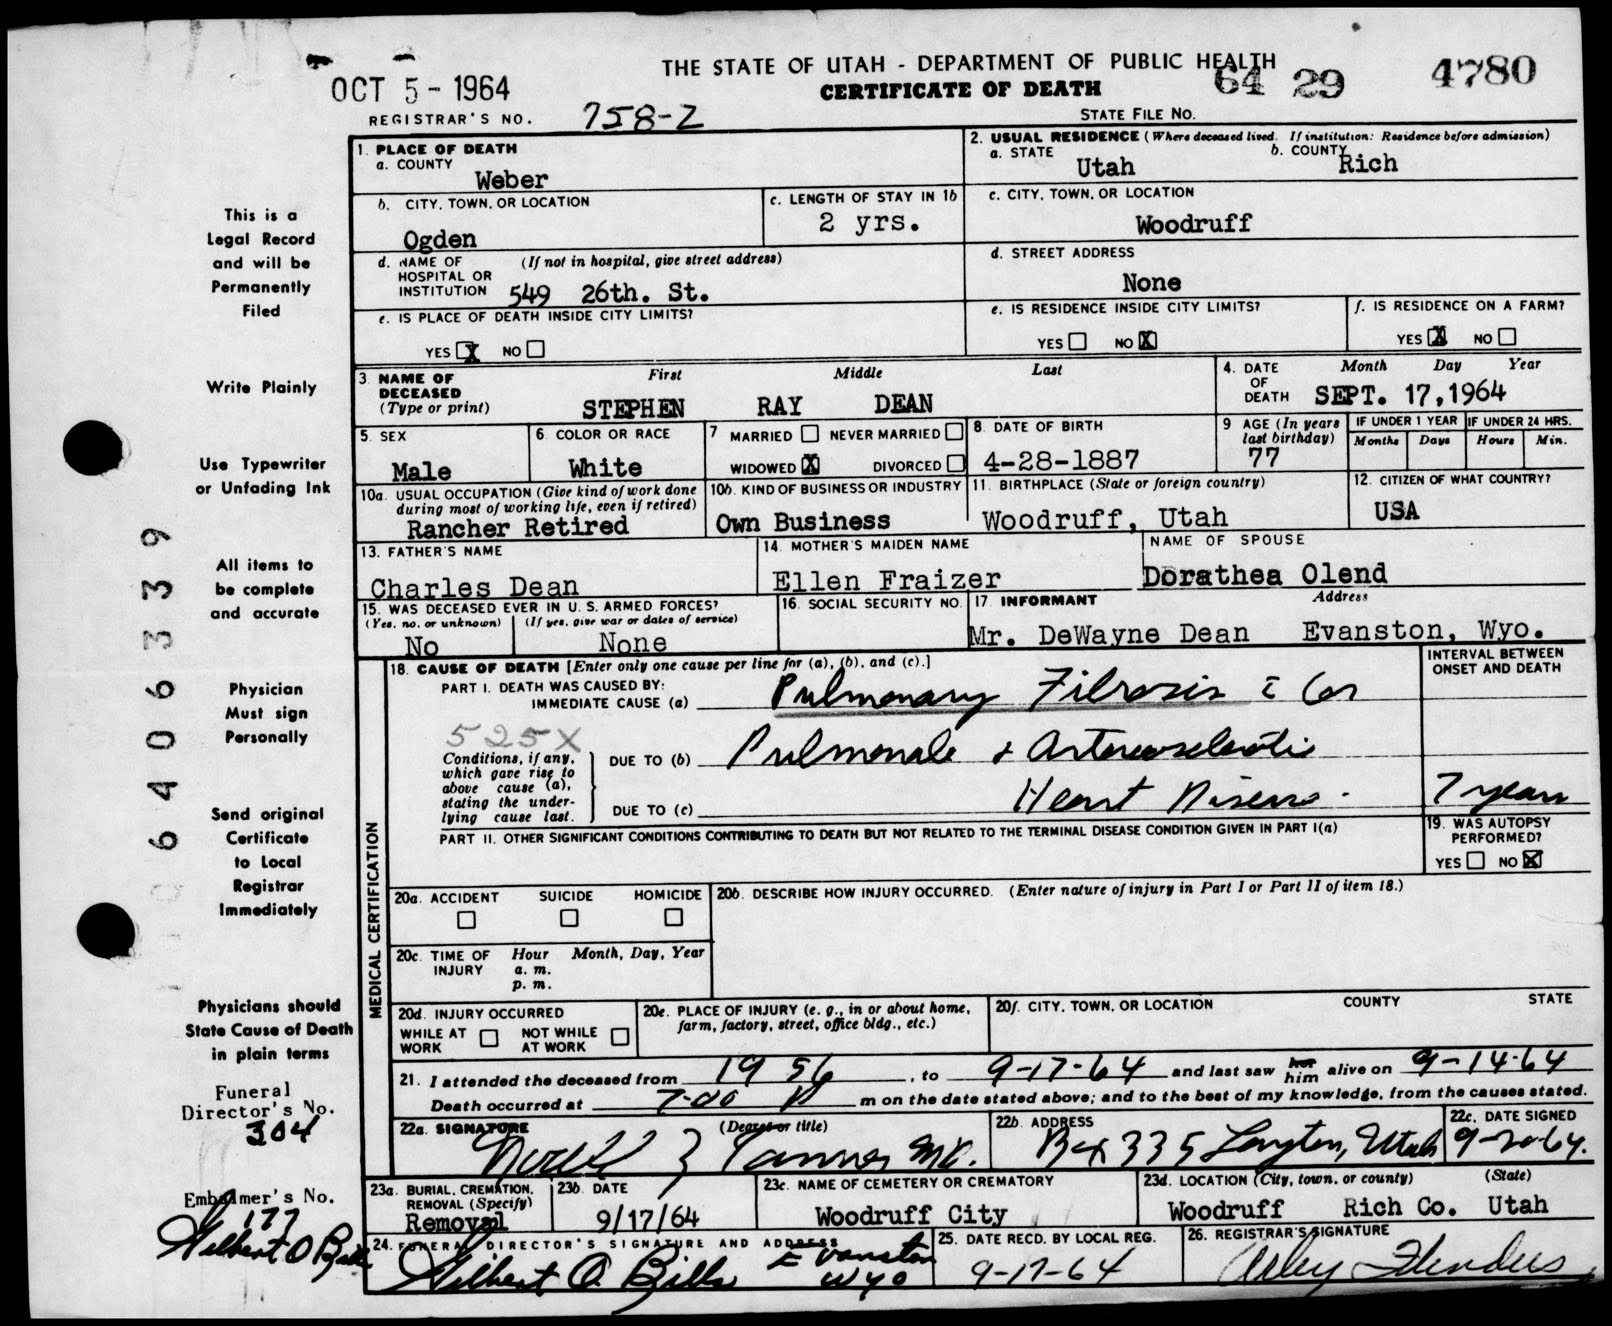 THE STATE OF UTAH - DEPARTMENT OF PUBLIC HEALTH
CERTIFICATE OF DEATH
64 29 4780
STATE FILE NO.
OCT 5 - 1964
REGISTRAR'S NO. 758-2
1. PLACE OF DEATH
a. COUNTY
Weber
2. USUAL RESIDENCE (Where deceased lived. If institution: Residence before admission)
a. STATE Utah
b. COUNTY Rich
b. CITY, TOWN, OR LOCATION
Ogden
c. LENGTH OF STAY IN 1b
2 yrs.
c. CITY, TOWN, OR LOCATION
Woodruff
d. NAME OF HOSPITAL OR INSTITUTION
(If not in hospital, give street address)
549 26th. St.
d. STREET ADDRESS
None
e. IS PLACE OF DEATH INSIDE CITY LIMITS?
YES X NO
e. IS RESIDENCE INSIDE CITY LIMITS?
YES NO X
f. IS RESIDENCE ON A FARM?
YES X NO
3. NAME OF DECEASED
(Type or print)
First Middle Last
STEPHEN RAY DEAN
4. DATE OF DEATH
Month Day Year
SEPT. 17,1964
5. SEX
Male
6. COLOR OR RACE
White
7 MARRIED NEVER MARRIED
WIDOWED X DIVORCED
8. DATE OF BIRTH
4-28-1887
9 AGE (In years last birthday)
77
IF UNDER 1 YEAR
Months Days
IF UNDER 24 HRS.
Hours Min.
10a. USUAL OCCUPATION (Give kind of work done during most of working life, even if retired)
Rancher Retired
10b. KIND OF BUSINESS OR INDUSTRY
Own Business
11. BIRTHPLACE (State or foreign country)
Woodruff, Utah
12. CITIZEN OF WHAT COUNTRY?
USA
13. FATHER'S NAME
Charles Dean
14. MOTHER'S MAIDEN NAME
Ellen Fraizer
NAME OF SPOUSE
Dorathea Olend
15. WAS DECEASED EVER IN U. S. ARMED FORCES?
(Yes, no, or unknown) (If yes, give war or dates of service)
No None
16. SOCIAL SECURITY NO.
17. INFORMANT Address
Mr. DeWayne Dean Evanston, Wyo.
MEDICAL CERTIFICATION
18. CAUSE OF DEATH [Enter only one cause per line for (a), (b), and (c).]
INTERVAL BETWEEN ONSET AND DEATH
PART I. DEATH WAS CAUSED BY:
IMMEDIATE CAUSE (a) Pulmonary Fibrosis c Cor
525X
Conditions, if any, which gave rise to above cause (a), stating the underlying cause last.
DUE TO (b) Pulmonale & Arteriosclerotic
DUE TO (c) Heart Disease. 7 years
PART II. OTHER SIGNIFICANT CONDITIONS CONTRIBUTING TO DEATH BUT NOT RELATED TO THE TERMINAL DISEASE CONDITION GIVEN IN PART I(a)
19. WAS AUTOPSY PERFORMED?
YES NO X
20a. ACCIDENT SUICIDE HOMICIDE
20b. DESCRIBE HOW INJURY OCCURRED. (Enter nature of injury in Part I or Part II of item 18.)
20c. TIME OF INJURY
Hour Month, Day, Year
a. m.
p. m.
20d. INJURY OCCURRED
WHILE AT WORK NOT WHILE AT WORK
20e. PLACE OF INJURY (e. g., in or about home, farm, factory, street, office bldg., etc.)
20f. CITY, TOWN, OR LOCATION COUNTY STATE
21. I attended the deceased from 1956, to 9-17-64 and last saw her him alive on 9-14-64
Death occurred at 7:00 P m on the date stated above; and to the best of my knowledge, from the causes stated.
22a. SIGNATURE (Degree or title)
Z Tanner MD.
22b. ADDRESS
Box 335 Layton, Utah
22c. DATE SIGNED
9-20-64.
23a. BURIAL, CREMATION, REMOVAL (Specify)
Removal
23b. DATE
9/17/64
23c. NAME OF CEMETERY OR CREMATORY
Woodruff City
23d. LOCATION (City, town, or county) (State)
Woodruff Rich Co. Utah
24. FUNERAL DIRECTOR'S SIGNATURE AND ADDRESS
Gilbert O. Bills Evanston Wyo
25. DATE RECD. BY LOCAL REG.
9-17-64
26. REGISTRAR'S SIGNATURE
Arley Flinders
This is a
Legal Record
and will be
Permanently
Filed
Write Plainly
Use Typewriter
or Unfading Ink
All items to
be complete
and accurate
Physician
Must sign
Personally
Send original
Certificate
to Local
Registrar
Immediately
Physicians should
State Cause of Death
in plain terms
Funeral
Director's No.
304
Embalmer's No.
177
Gilbert O Bills
64063339